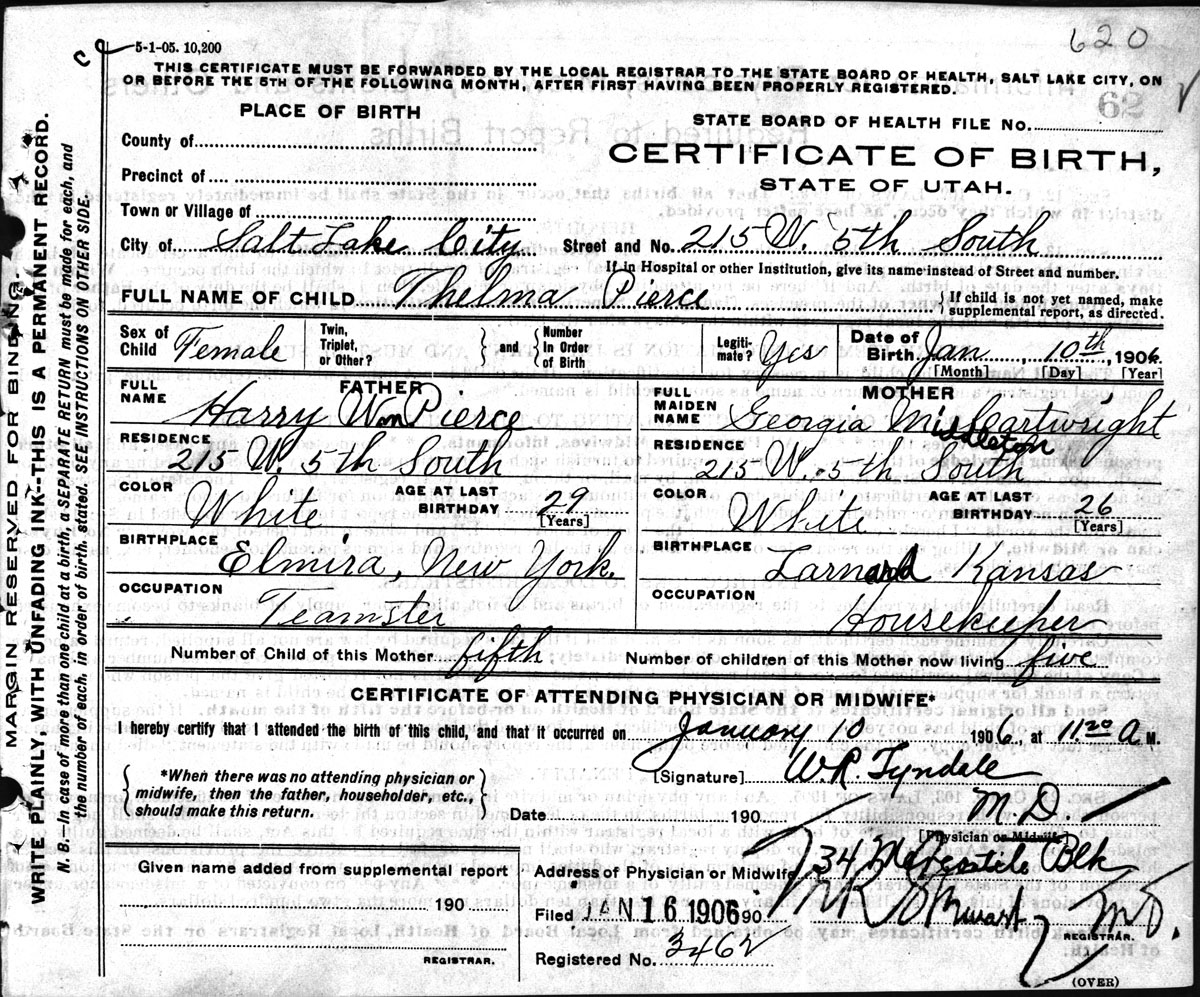 620
5-1-05. 10,200
THIS CERTIFICATE MUST BE FORWARDED BY THE LOCAL REGISTRAR TO THE STATE BOARD OF HEALTH, SALT LAKE CITY, ON
OR BEFORE THE 5TH OF THE FOLLOWING MONTH, AFTER FIRST HAVING BEEN PROPERLY REGISTERED.
62
MARGIN RESERVED FOR BINDING
WRITE PLAINLY WITH UNFADING INK--THIS IS A PERMANENT RECORD.
N. B. In case of more than one child at a birth, a SEPARATE RETURN must be made for each, and
the number of each, in order of birth, stated. SEE INSTRUCTIONS ON OTHER SIDE.
PLACE OF BIRTH
County of
Precinct of
Town or Village of
STATE BOARD OF HEALTH FILE No.
CERTIFICATE OF BIRTH,
STATE OF UTAH.
City of Salt Lake City Street and No. 215 W. 5th South
If in Hospital or other Institution, give its name instead of Street and number.
FULL NAME OF CHILD Thelma Pierce { If child is not yet named, make
supplemental report, as directed.
Sex of Child Female Twin, Triplet, or Other? } and { Number In Order of Birth Legiti- mate? Yes Date of Birth Jan 10th, 1906
[Month] [Day] [Year]
FATHER
FULL NAME Harry Wm Pierce
RESIDENCE
215 W. 5th South
COLOR White AGE AT LAST BIRTHDAY 29
[Years]
BIRTHPLACE
Elmira, New York.
OCCUPATION
Teamster
MOTHER
FULL MAIDEN NAME Georgia Middleton Cartwright
RESIDENCE
215 W. 5th South
COLOR White AGE AT LAST BIRTHDAY 26
[Years]
BIRTHPLACE
Larnard Kansas
OCCUPATION
Housekeeper
Number of Child of this Mother fifth Number of children of this Mother now living five
CERTIFICATE OF ATTENDING PHYSICIAN OR MIDWIFE*
I hereby certify that I attended the birth of this child, and that it occurred on January 10 1906, at 11 20 A. M.
{ *When there was no attending physician or
midwife, then the father, householder, etc.,
should make this return. }
[Signature] W. R. Tyndale
Date 190 M. D.
[Physician or Midwife]
Address of Physician or Midwife 734 Mercantile Blk
Given name added from supplemental report
190
REGISTRAR.
Filed JAN 16 1906 190 M.D.
REGISTRAR.
Registered No. 3462
(OVER)